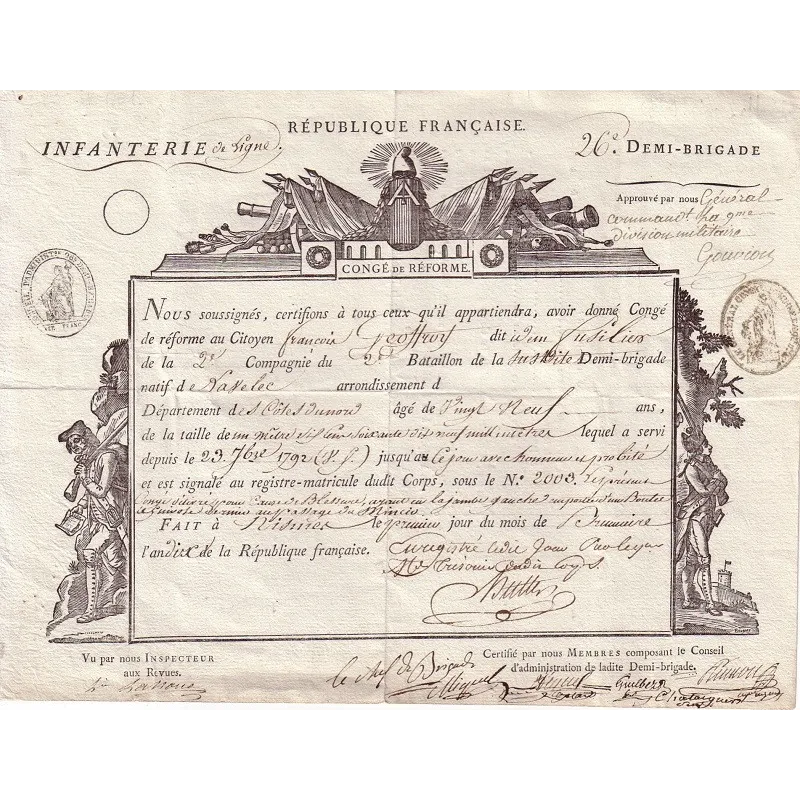 RÉPUBLIQUE FRANÇAISE.
INFANTERIE de Ligne.
26e. DEMI-BRIGADE
Approuvé par nous Général
commandt. la 9me
Division militaire
CONGÉ DE RÉFORME.
NOUS soussignés, certifions à tous ceux qu'il appartiendra, avoir donné Congé
de réforme au Citoyen françois Geoffroy dit idem fusilier
de la 2e Compagnie du 2d Bataillon de la susdite Demi-brigade
natif de arrondissement d
Département des Côtes du nord âgé de Vingt Neuf ans,
de la taille de un mètre six cens soixante dix neuf millimetres lequel a servi
depuis le 23 7bre 1792 (V. S.) jusqu'à ce jour avec honneur et probité
et est signalé au registre-matricule dudit Corps, sous le N.o 2003. Le présent
Congé délivré pour Cause de Blessure, ayant eu la jambe gauche emportée d'un Boulet
au passage du Mincio.
FAIT à le premier jour du mois de Brumaire
l'an dix de la République française.
Enregistré
VU par nous INSPECTEUR
aux REVUES.
Certifié par nous MEMBRES composant le Conseil
d'administration de ladite Demi-brigade.
le chef de Brigade
Guilbert